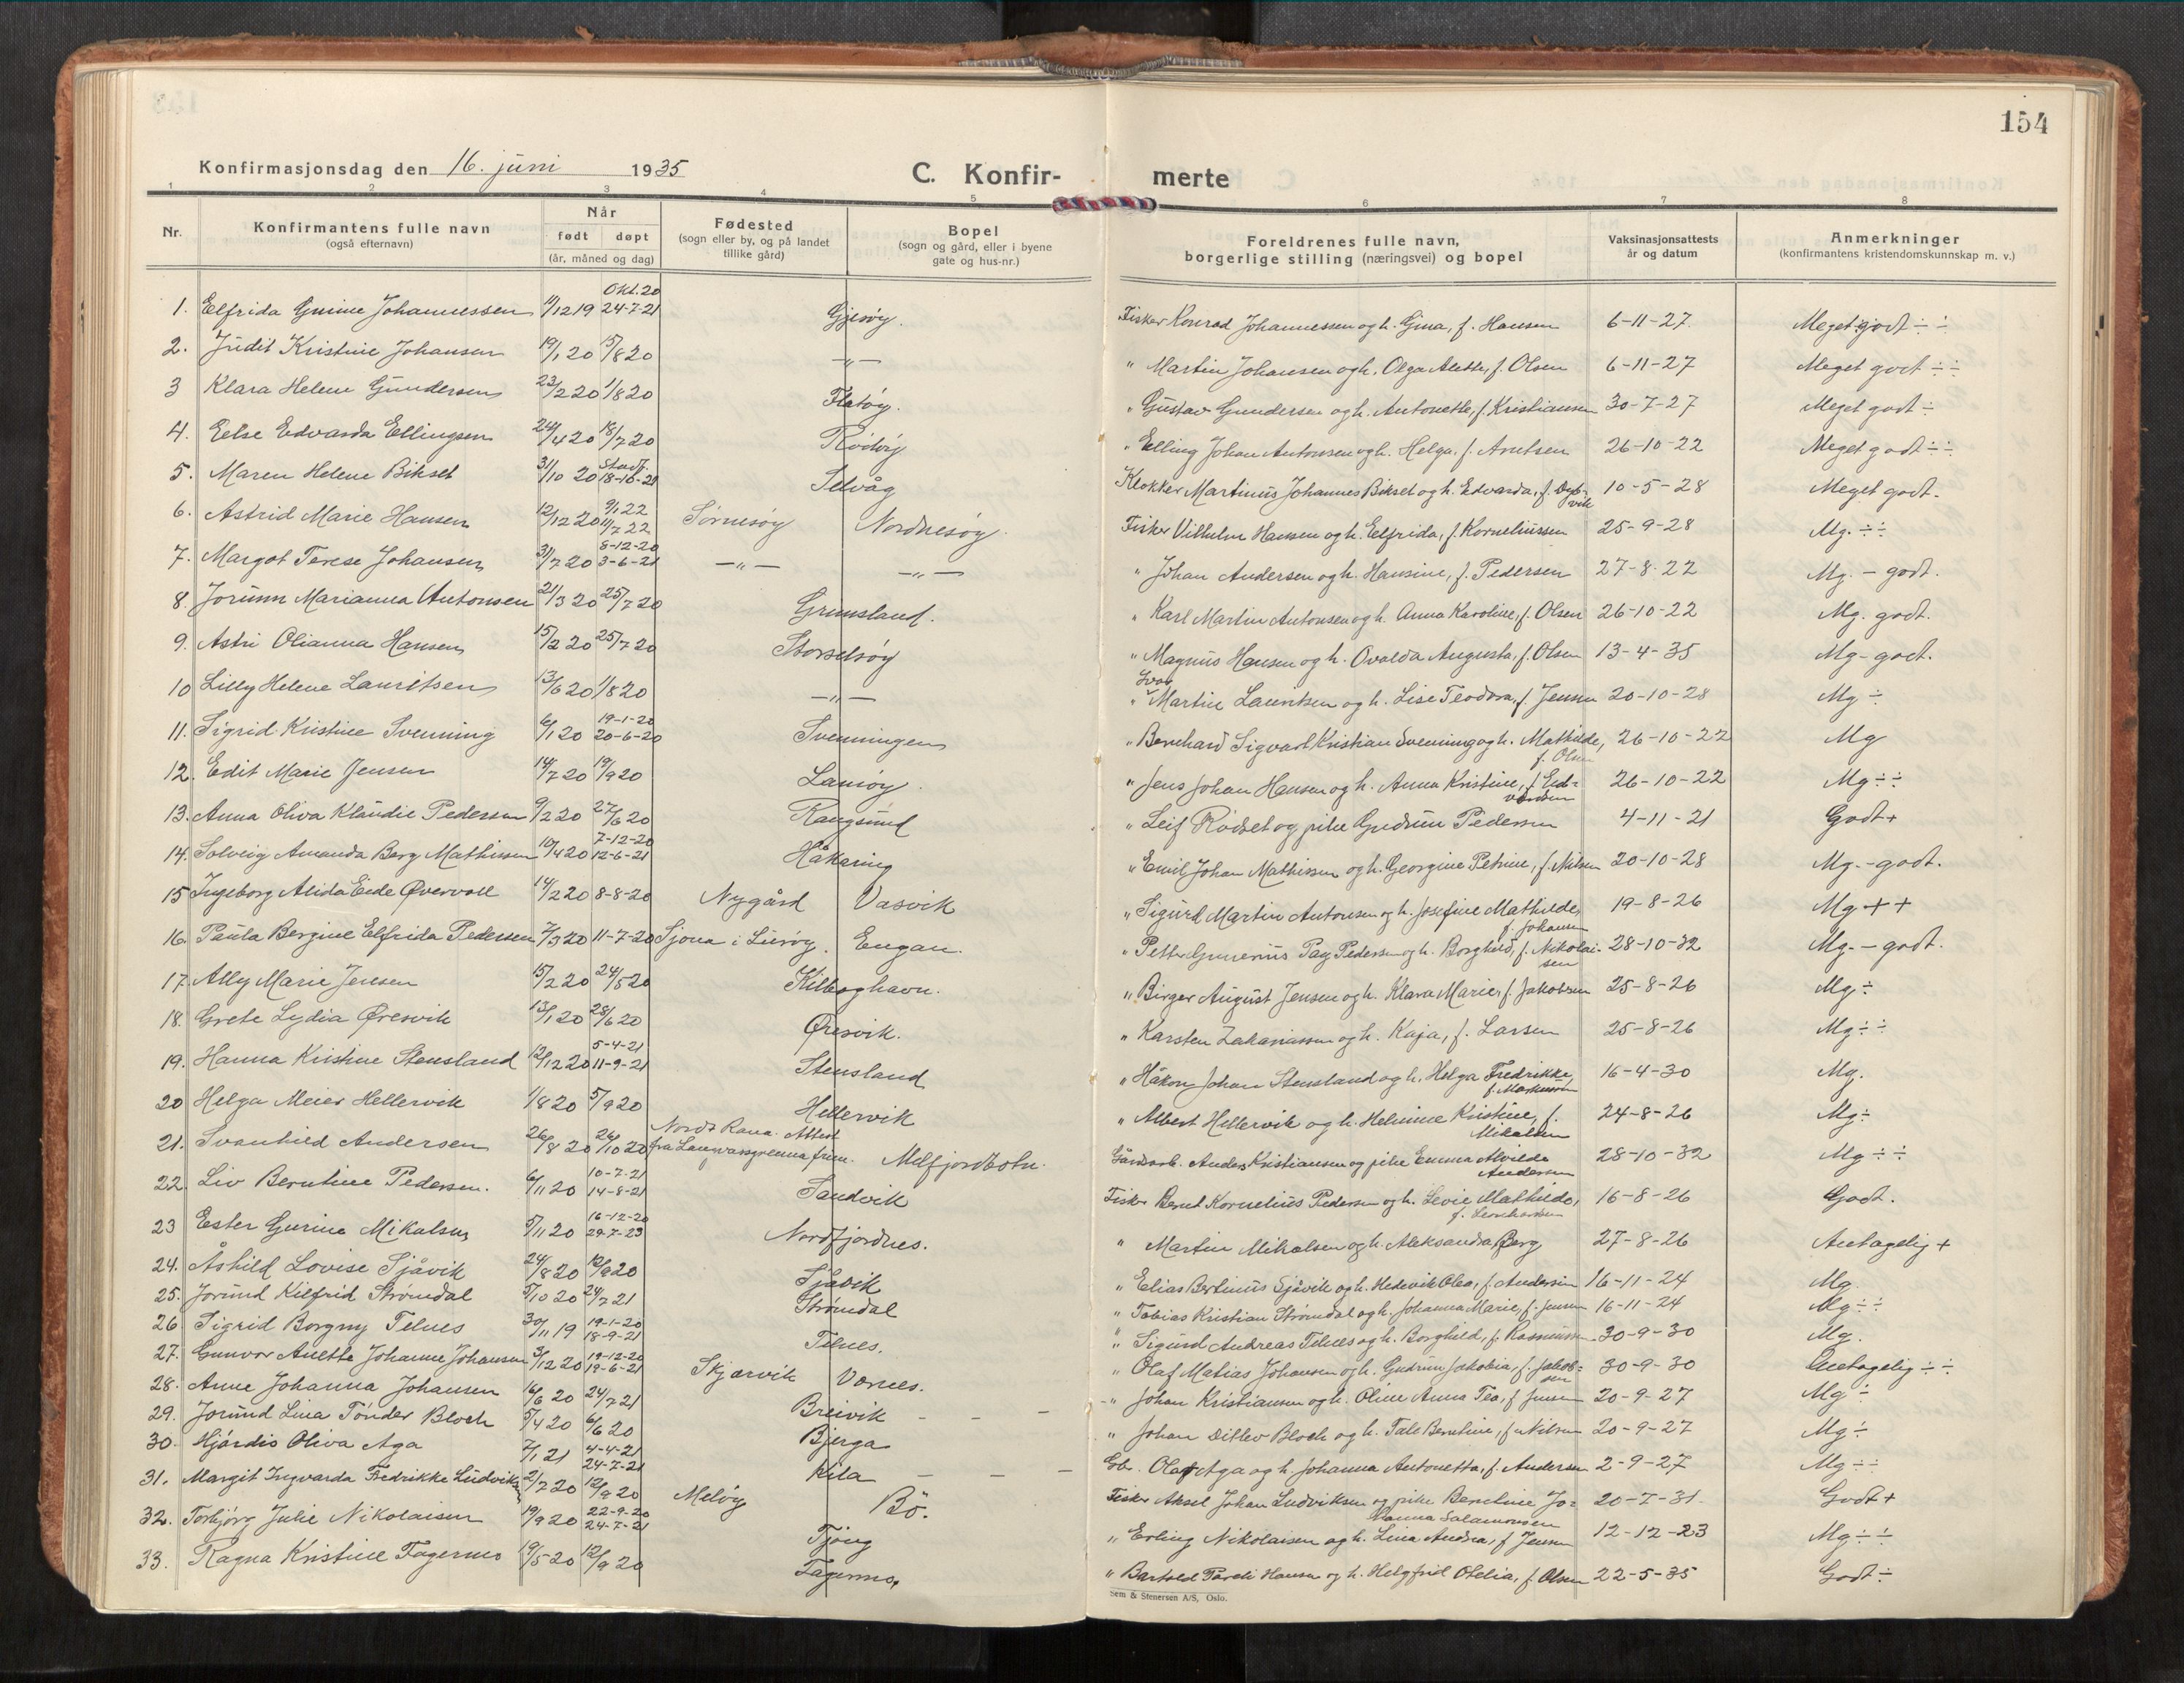 154
Konfirmasjonsdag den 16. juni 1935
C. Konfir- merte
1 2 3 4 5 6 7 8
Nr.
Konfirmantens fulle navn
(også efternavn)
Når
født døpt
(år, måned og dag)
Fødested
(sogn eller by, og på landet
tillike gård)
Bopel
(sogn og gård, eller i byene
gate og hus-nr.)
Foreldrenes fulle navn,
borgerlige stilling (næringsvei) og bopel
Vaksinasjonsattests
år og datum
Anmerkninger
(konfirmantens kristendomskunnskap m. v.)
Okt. 20
1. Elfrida Gurine Johannessen 11/12 19 24-7-21 Gjesøy. Fisker Konrad Johannessen og h. Gina, f. Hansen 6-11-27. Meget godt ÷ ÷
2. Judit Kristine Johansen 19/1 20 15/8 20 —"— " Martin Johansen og h. Olga Alette, f. Olsen 6-11-27 Meget godt ÷ ÷
3 Klara Helene Gundersen 23/2 20 1/8 20 Flatøy. " Gustav Gundersen og h. Antonette, f. Kristiansen 30-7-27 Meget godt ÷
4. Else Edvarda Ellingsen 24/4 20 18/7 20 Rödöy " Elling Johan Antonsen og h. Helga, f. Arntsen 26-10-22 Meget godt ÷ ÷
5. Maren Helene Bikset 31/10 20 Stadf. 18-10-21 Selvåg Klokker Martinus Johannes Bikset og h. Edvarda, f. Dyb-
vik 10-5-28 Meget godt.
6. Astrid Marie Hansen 12/12 20 9/1 22 11/7 22 Sørnesøy Nordnesøy. Fisker Vilhelm Hansen og h. Elfrida, f. Korneliussen 25-9-28 Mg. ÷ ÷
7. Margot Terese Johansen 31/7 20 8-12-20 3-6-21 —"— —"— " Johan Andersen og h. Hansine, f. Pedersen 27-8-22 Mg. - godt.
8. Jorunn Marianna Antonsen 21/3 20 25/7 20 Grimsland. " Karl Martin Antonsen og h. Anna Karoline, f. Olsen 26-10-22 Mg. godt.
9. Astri Olianna Hansen 15/2 20 25/7 20 Storselsøy " Magnus Hansen og h. Ovalda Augusta, f. Olsen 13-4-35 Mg - godt.
10 Lilly Helene Lauritsen 13/6 20 1/8 20 —"— " Martin Lauritsen og h. Lise Teodora, f. Jensen 20-10-28 Mg ÷
11. Sigrid Kristine Svenning 6/1 20 19-1-20 20-6-20 Svenningen " Bernhard Sigvart Kristian Svenning og h. Mathilde,
f. Olsen 26-10-22 Mg
12. Edit Marie Jensen 14/7 20 19/9 20 Lamøy. " Jens Johan Hansen og h. Anna Kristine, f. Ed-
vardsen 26-10-22 Mg ÷ ÷
13. Anna Oliva Klaudie Pedersen 9/2 20 27/6 20 Rangsund " Leif Rödset og pike Gudrun Pedersen 4-11-21 Godt +
14. Solveig Amanda Berg Mathissen 10/4 20 7-12-20 12-6-21 Håkaring " Emil Johan Mathissen og h. Georgine Petrine, f. Nilsen 20-10-28 Mg. - godt.
15 Ingeborg Alida Eide Øvervoll 14/2 20 8-8-20 Nygård Vasvik " Sigurd Martin Antonsen og h. Josefine Mathilde,
f. Johansen 19-8-26 Mg + +
16. Paula Bergine Elfrida Pedersen 7/3 20 11-7-20 Sjona i Lurøy. Engan. " Petter Gunerius Pay Pedersen og h. Borghild, f. Nikolai-
sen 28-10-32 Mg. - godt.
17. Ally Marie Jensen 15/2 20 24/5 20 Kilboghavn. " Birger August Jensen og h. Klara Marie, f. Jakobsen 25-8-26 Mg ÷
18. Grete Lydia Øresvik 13/1 20 28/6 20 Øresvik. " Karsten Zakariassen og h. Kaja, f. Larsen 25-8-26 Mg ÷ ÷
19. Hanna Kristine Stensland 12/12 20 5-4-21 11-9-21 Stensland " Håkon Johan Stensland og h. Helga Fredrikke,
f. Markussen 16-4-30 Mg.
20 Helga Meier Hellervik 1/8 20 5/9 20 Hellervik " Albert Hellervik og h. Helmine Kristine, f.
Mikalsen 24-8-26 Mg ÷
21. Svanhild Andersen 26/8 20 26/10 20 Nord Rana. Attest
fra Langvassgrenna frem. Melfjordbotn. Gårdsarb. Anders Kristiansen og pike Emma Alvilde
Andersen 28-10-32 Mg ÷ ÷
22. Liv Berntine Pedersen. 6/11 20 10-7-21 14-8-21 Sandvik Fisker Bernt Kornelius Pedersen og h. Levie Mathilde,
f. Leonhardsen 16-8-26 Godt.
23 Ester Gurine Mikalsen 5/11 20 16-12-20 29-7-23 Nordfjordnes. " Martin Mikalsen og h. Aleksanda Berg 27-8-26 Antagelig +
24. Åshild Lovise Sjåvik 24/8 20 12/9 20 Sjåvik " Elias Bertinus Sjåvik og h. Hedevik Olea, f. Andersen 16-11-24 Mg.
25. Jorund Kilfrid Strömdal 5/10 20 24/7 21 Strömdal " Tobias Kristian Strömdal og h. Johanna Marie, f. Jensen 16-11-24 Mg ÷ ÷
26 Sigrid Borgny Telnes 30/11 19 19-1-20 18-9-21 Telnes. " Sigurd Andreas Telnes og h. Borghild, f. Rasmussen 30-9-30 Mg.
27. Gunvor Anette Johanne Johansen 3/12 20 19-12-20 19-6-21 Skjærvik Værnes. " Olaf Matias Johansen og h. Gudrun Jakobia, f. Jakob-
sen 30-9-30 Antagelig ÷ ÷
28. Anne Johanna Johansen 16/6 20 24/7 21 Breivik - - - " Johan Kristiansen og h. Oline Anna Tea, f. Jensen 20-9-27 Mg ÷
29. Jorund Lina Tönder Bloch 5/4 20 6/6 20 Bjerga " Johan Ditlev Bloch og h. Tale Berntine, f. Nilsen 20-9-27 Mg ÷
30. Hjördis Oliva Aga 7/1 21 4-4-21 24-7-21 Kila - - - Gb. Olaf Aga og h. Johanna Antonetta, f. Andersen 2-9-27 Mg ÷ ÷
31. Margit Ingvarda Fredrikke Ludviksen 2/7 20 12/9 20 Meløy Bö. Fisker Aksel Johan Ludviksen og pike Berntine Jo-
hanna Salamonsen 20-7-31. Godt +
32. Torbjörg Julie Nikolaisen 19/9 20 22-9-20 24-7-21 Tjöng " Erling Nikolaisen og h. Lina Andrea, f. Jensen 12-12-23 Mg ÷ ÷
33. Ragna Kristine Fagermo 19/5 20 12/9 20 Fagermo. " Bartold Hansen og h. Helgfrid Otelia, f. Olsen 22-5-35 Godt ÷
Sem & Stenersen A/S, Oslo.